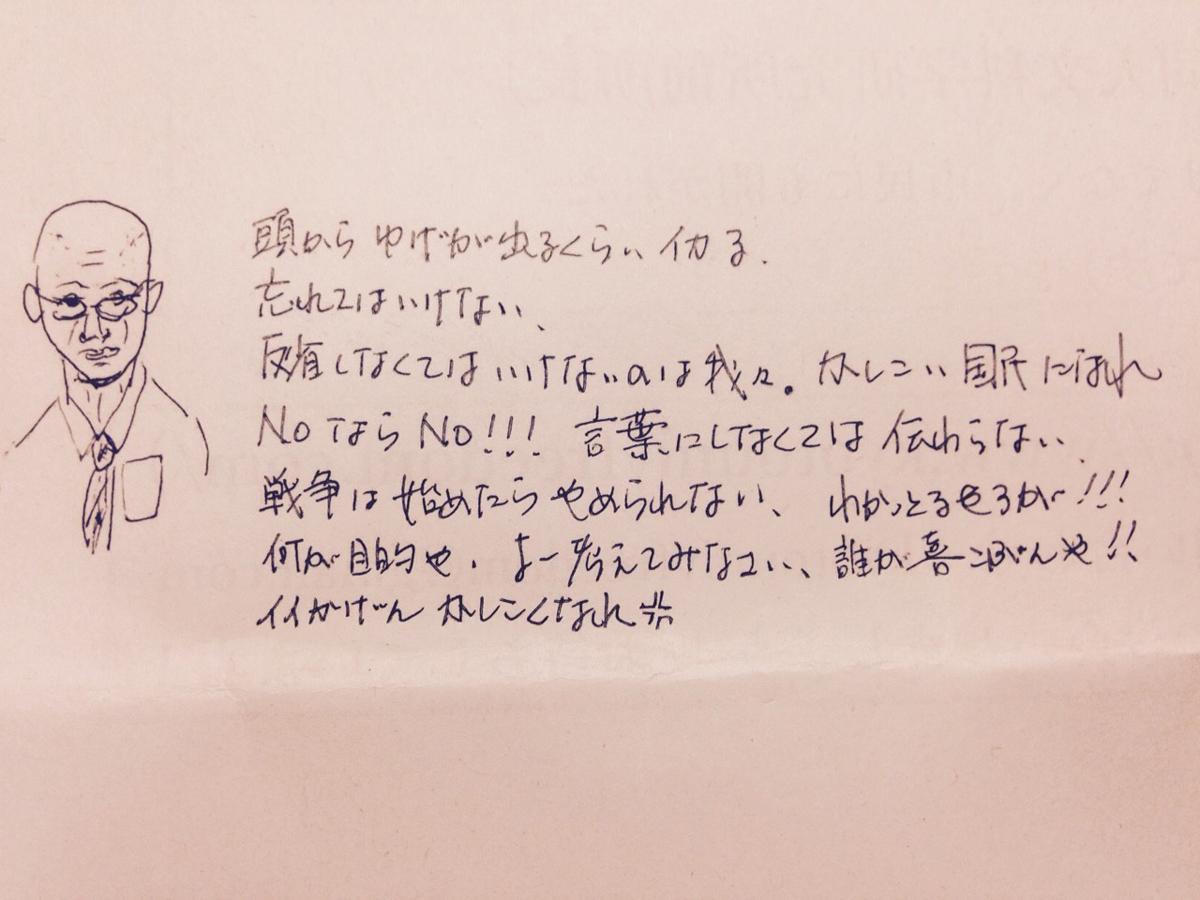 頭からゆげが出るくらい イカる.
忘れてはいけない、
反省しなくてはいけないのは我々。かしこい国民になれ
NoならNO!!! 言葉にしなくては伝わらない、
戦争は始めたらやめられない、わかっとるやろが!!!
何が目的や. よー考えてみなさい、誰が喜こぶんや!!
イイかげん かしこくなれ